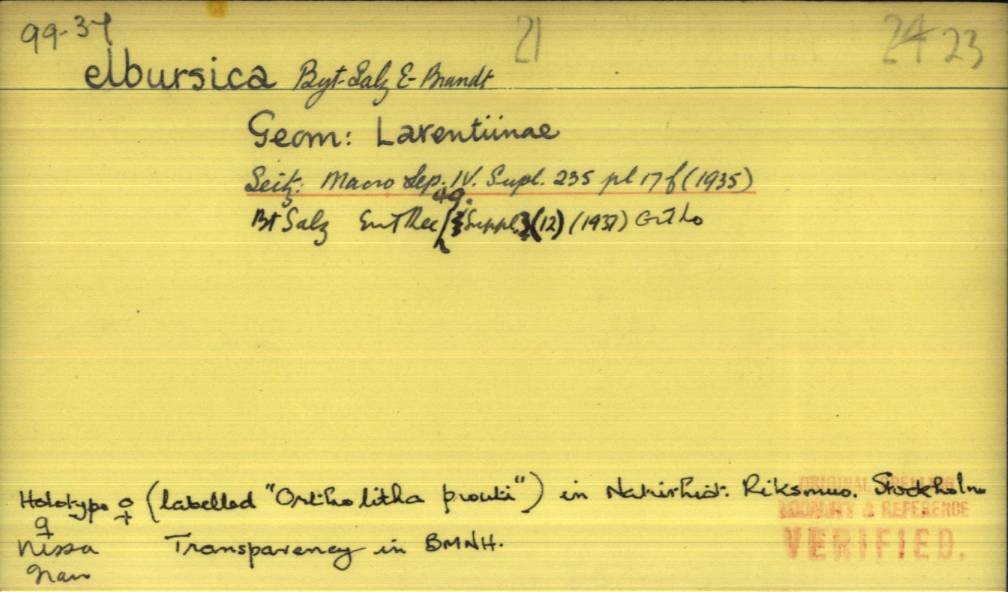 99-37 21 24 23
elbursica Byt-Salz & Brandt
Geom: Larentiinae
Seitz: Macro Lep. IV. Supl. 235 pl 17 f (1935)
49.
Bt Salz Ent Rec { Suppl. (12) (1937) Ortho
Holotype ♀ (labelled "Ortholitha prouti") in Naturhist. Riksmus. Stockholm
♀
Transparency in BMNH.
ORIGINAL SPELLING
LOCALITY & REFERENCE
VERIFIED.